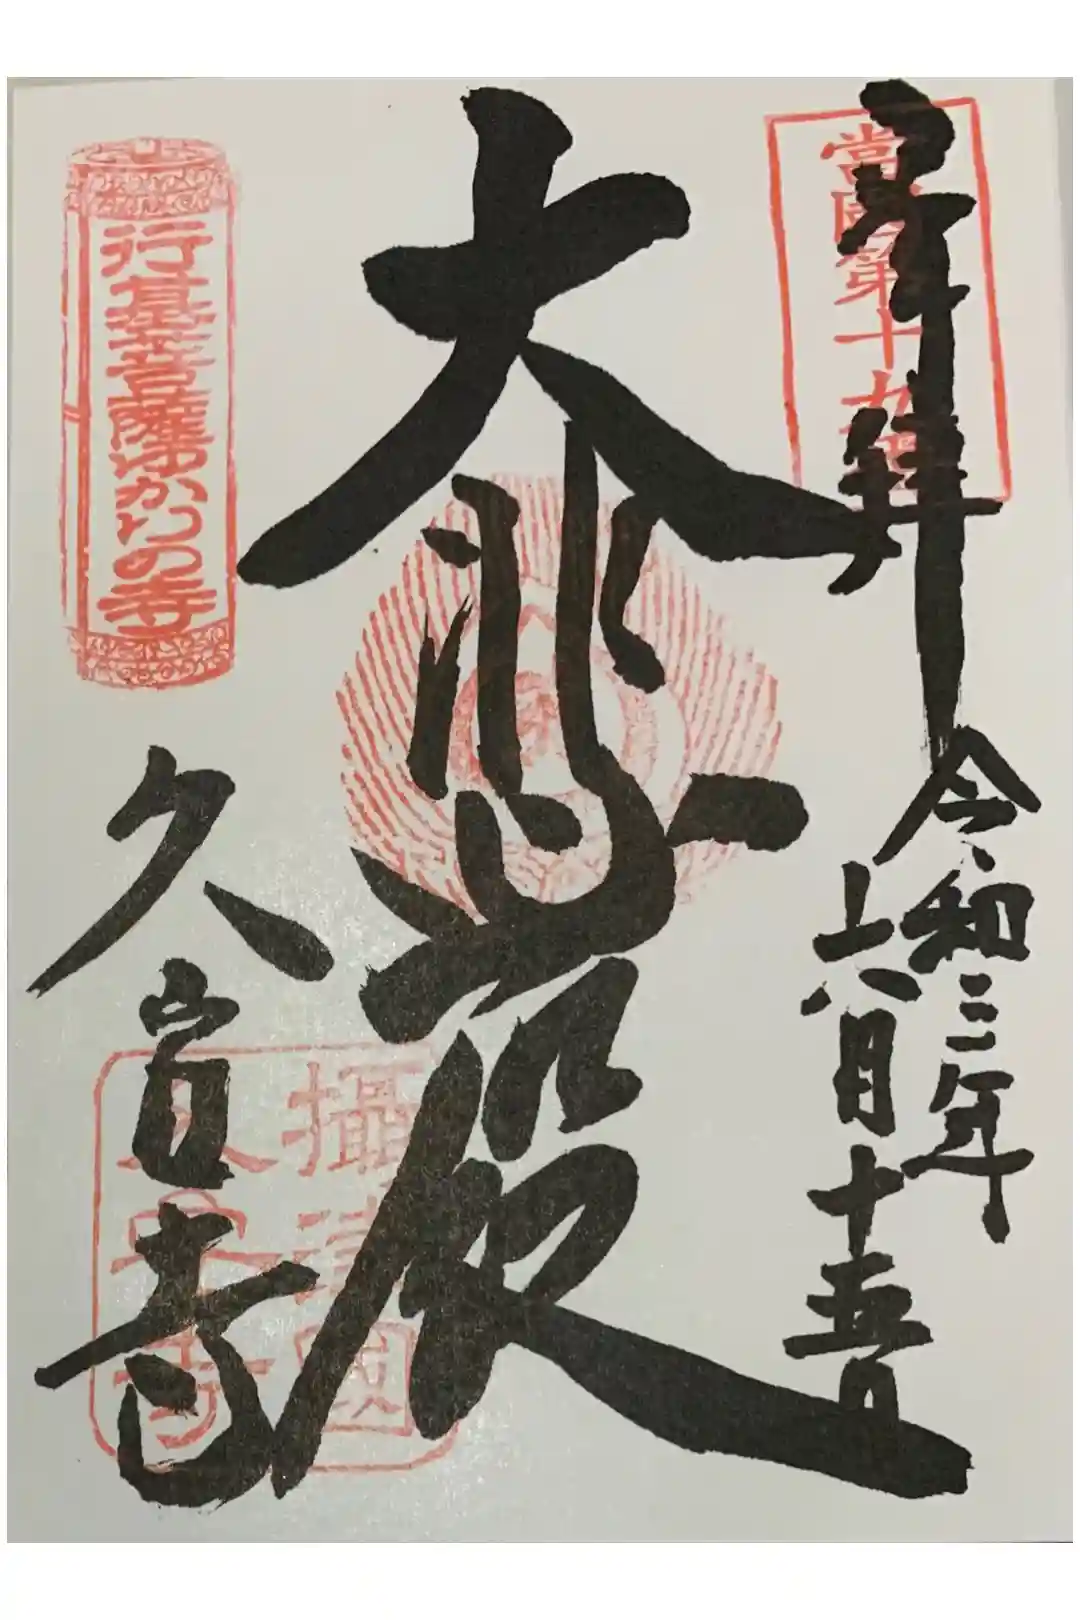 奉拝
當國第十九番
令和三年
六月十五日
大悲殿
行基菩薩ゆかりの寺
久安寺
攝津國
久安寺